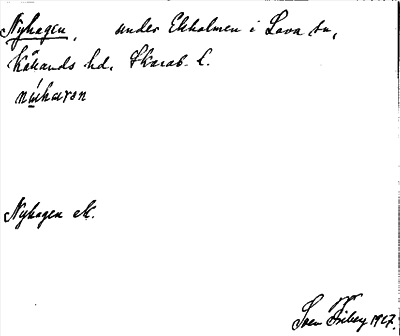 Nyhagen, under Ekholmen i Lava sn,
Kållands hd, Skarab. l.
nýihavan
Nyhagen ek.
Sven Friberg 1927.